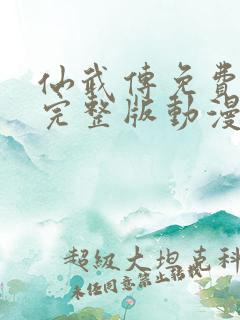 仙武傳免費
完整版動漫
超級大坦克科
未經同意禁止轉載